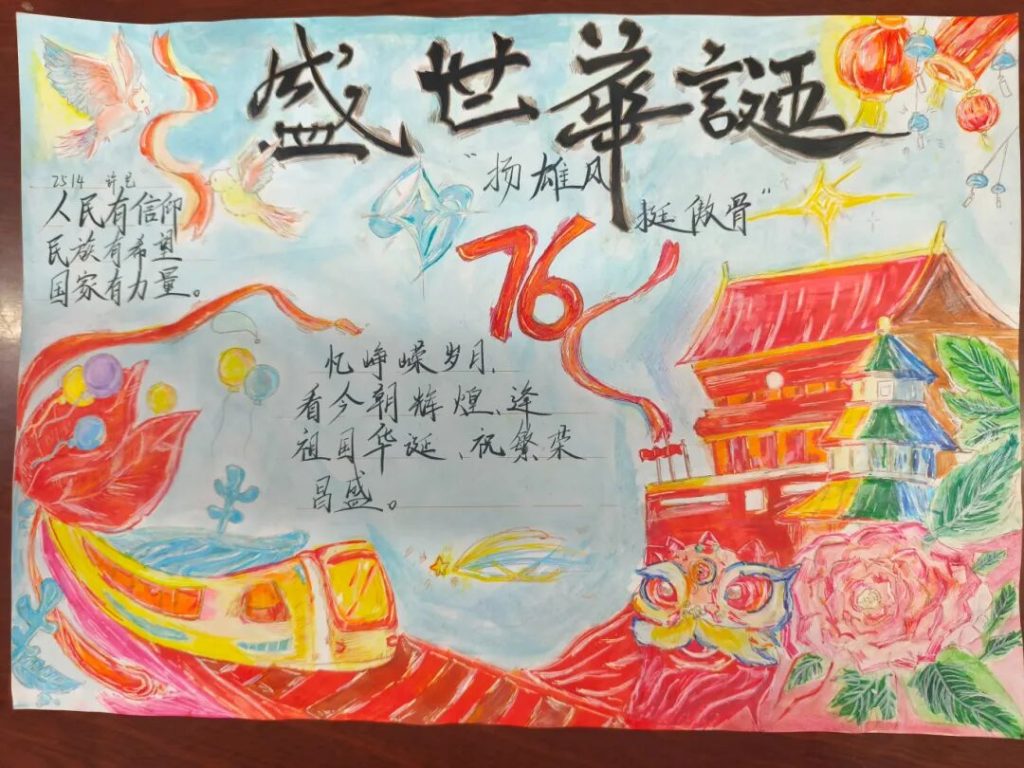 盛世華誕
“扬雄风
挺傲骨”
76
2514
人民有信仰
民族有希望
国家有力量。
忆峥嵘岁月、
看今朝辉煌、逢
祖国华诞、祝繁荣
昌盛。